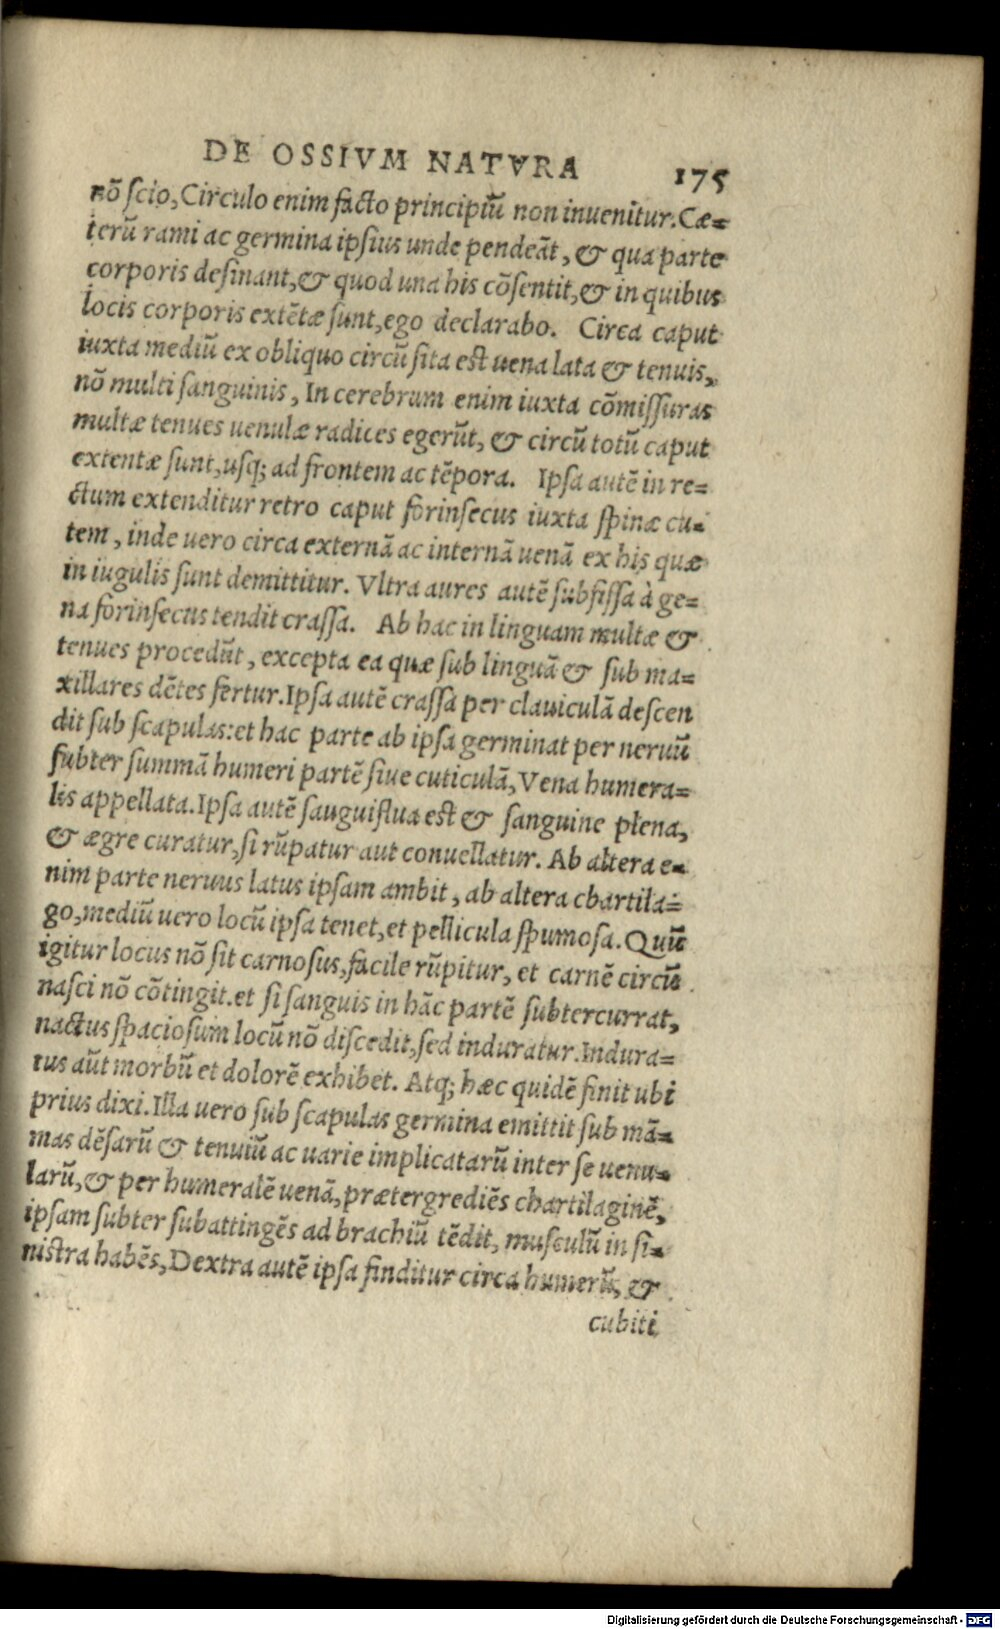 DE OSSIVM NATVRA 175
nō ſcio, Circulo enim facto principiū non inuenitur. Cæ=
terū rami ac germina ipſius unde pendeāt, & qua parte
corporis deſinant, & quod una his cōſentit, & in quibus
locis corporis extētæ ſunt, ego declarabo. Circa caput
iuxta mediū ex obliquo circū ſita eſt uena lata & tenuis,
nō multi ſanguinis, In cerebrum enim iuxta cōmiſſuras
multæ tenues uenulæ radices egerūt, & circū totū caput
extentæ ſunt, uſq; ad frontem ac tēpora. Ipſa autē in re=
ctum extenditur retro caput forinſecus iuxta ſpinæ cu=
tem, inde uero circa externā ac internā uenā ex his quæ
in iugulis ſunt demittitur. Vltra aures autē ſubfiſſa à ge=
na forinſecus tendit craſſa. Ab hac in linguam multæ &
tenues procedūt, excepta ea quæ ſub linguā & ſub ma=
xillares dētes fertur. Ipſa autē craſſa per clauiculā deſcen
dit ſub ſcapulas: et hac parte ab ipſa germinat per neruū
ſubter ſummā humeri partē ſiue cuticulā, Vena humera=
lis appellata. Ipſa autē ſauguiflua eſt & ſanguine plena,
& ægre curatur, ſi rūpatur aut conuellatur. Ab altera e=
nim parte neruus latus ipſam ambit, ab altera chartila=
go, mediū uero locū ipſa tenet, et pellicula ſpumoſa. Quū
igitur locus nō ſit carnoſus, facile rūpitur, et carnē circū
naſci nō cōtingit. et ſi ſanguis in hāc partē ſubtercurrat,
nactus ſpacioſum locū nō diſcedit, ſed induratur. Indura=
tus aūt morbū et dolorē exhibet. Atq; hæc quidē finit ubi
prius dixi. Illa uero ſub ſcapulas germina emittit ſub mā=
mas dēſarū & tenuiū ac uarie implicatarū inter ſe uenu=
larū, & per humeralē uenā, prætergrediēs chartilaginē,
ipſam ſubter ſubattingēs ad brachiū tēdit, muſculū in ſi=
niſtra habēs, Dextra autē ipſa finditur circa humerū, &
cubiti
Digitalisierung gefördert durch die Deutsche Forschungsgemeinschaft - DFG